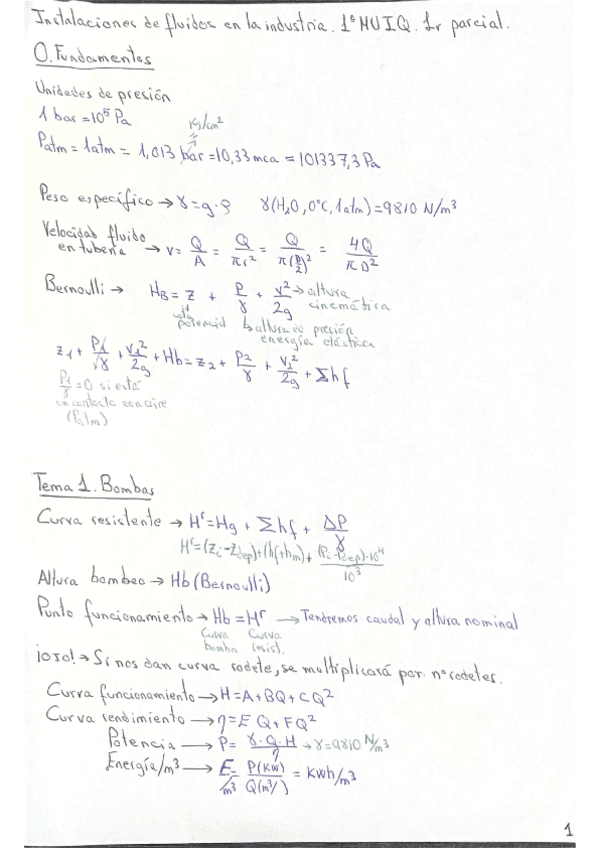 Instalaciones de fluidos en la industria. 1º MUIQ. 1r parcial.
0. Fundamentos
Unidades de presión
1 bar = 10⁵ Pa
Kg/cm²
Patm = 1atm = 1,013 bar = 10,33 mca = 101337,3 Pa
Peso específico → γ = g·ρ γ(H₂O, 0°C, 1atm) = 9810 N/m³
Velocidad fluido en tubería → v = Q/A = Q/πr² = Q/π(D/2)² = 4Q/πD²
Bernoulli → H_B = z + P/γ + v²/2g → altura cinemática
potencial ↳ altura de presión
energía elástica
z₁ + P₁/γ + v₁²/2g + Hb = z₂ + P₂/γ + v₂²/2g + Σhf
P₁/γ = 0 si está
en contacto con aire
(Patm)
Tema 1. Bombas
Curva resistente → Hʳ = Hg + Σhf + ΔP/γ
Hʳ = (zᵢ - z_dep) + (hf + hm) + (Pᵢ - P_dep)·10⁴/10³
Altura bombeo → Hb (Bernoulli)
Punto funcionamiento → Hb = Hʳ → Tendremos caudal y altura nominal
Curva bomba Curva resist.
¡OJO! → Si nos dan curva rodete, se multiplicará por nº rodetes.
Curva funcionamiento → H = A + BQ + CQ²
Curva rendimiento → η = EQ + FQ²
Potencia → P = γ·Q·H/η → γ = 9810 N/m³
Energía/m³ → E/m³ = P(KW)/Q(m³/) = KWh/m³
1